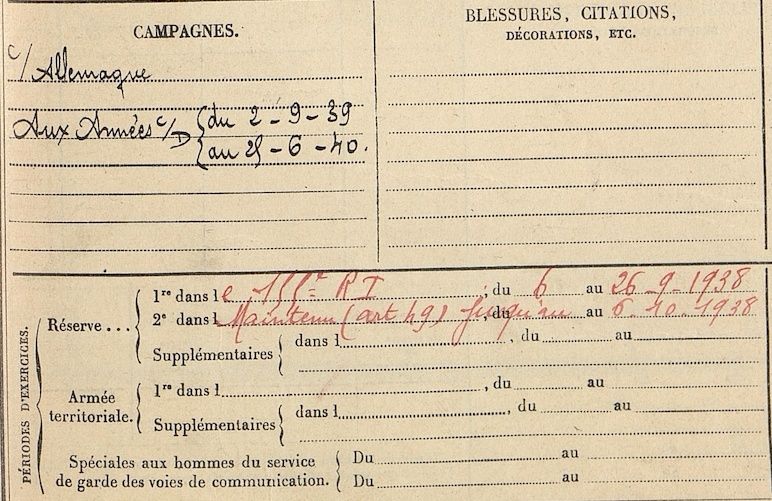 CAMPAGNES.
c/ Allemagne
Aux Armées c/D { du 2-9-39
{ au 25-6-40.
BLESSURES, CITATIONS,
DÉCORATIONS, ETC.
PÉRIODES D'EXERCICES.
Réserve... { 1re dans le R I, du 6 au 26-9-1938
2e dans l Maintenu (art 49) jusqu'au, du au 6-10-1938
Supplémentaires { dans l , du au
Armée territoriale. { 1re dans l , du au
Supplémentaires { dans l , du au
Spéciales aux hommes du service { Du au
de garde des voies de communication. { Du au